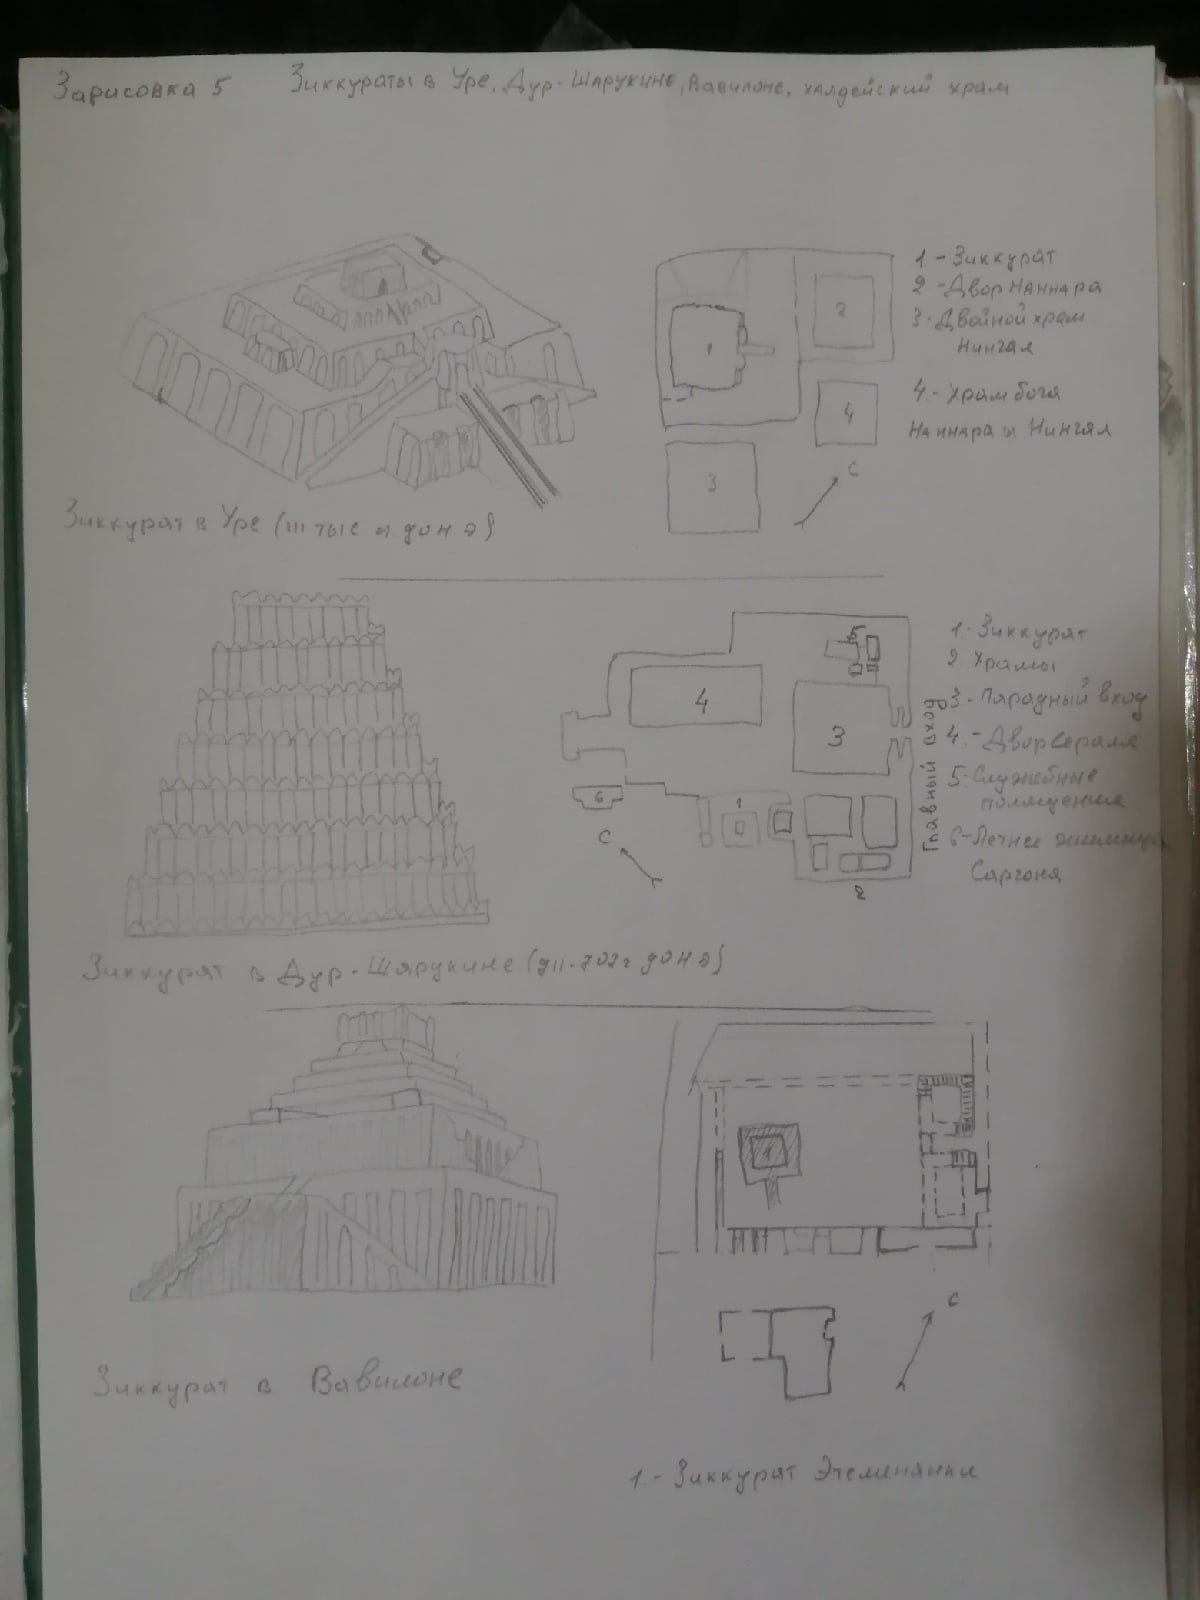 Зарисовка 5 Зиккураты в Уре, Дур-Шарукине, Вавилоне, халдейский храм
1 - Зиккурат
2 - Двор Наннара
3 - Двойной храм
Нингал
4.- Храм бога
Наннара и Нингал
1
2
3
4
С
Зиккурат в Уре (III тыс л до н э)
1.- Зиккурат
2 Храмы
3 - Парадный вход
4.- Двор Сераля
5 - Служебные
помещения
6 - Летнее
Саргона
5
4
3
Главный вход
6
1
С
2
Зиккурат в Дур-Шарукине (711-707 г до н э)
1
С
Зиккурат в Вавилоне
1.- Зиккурат Этеменанки